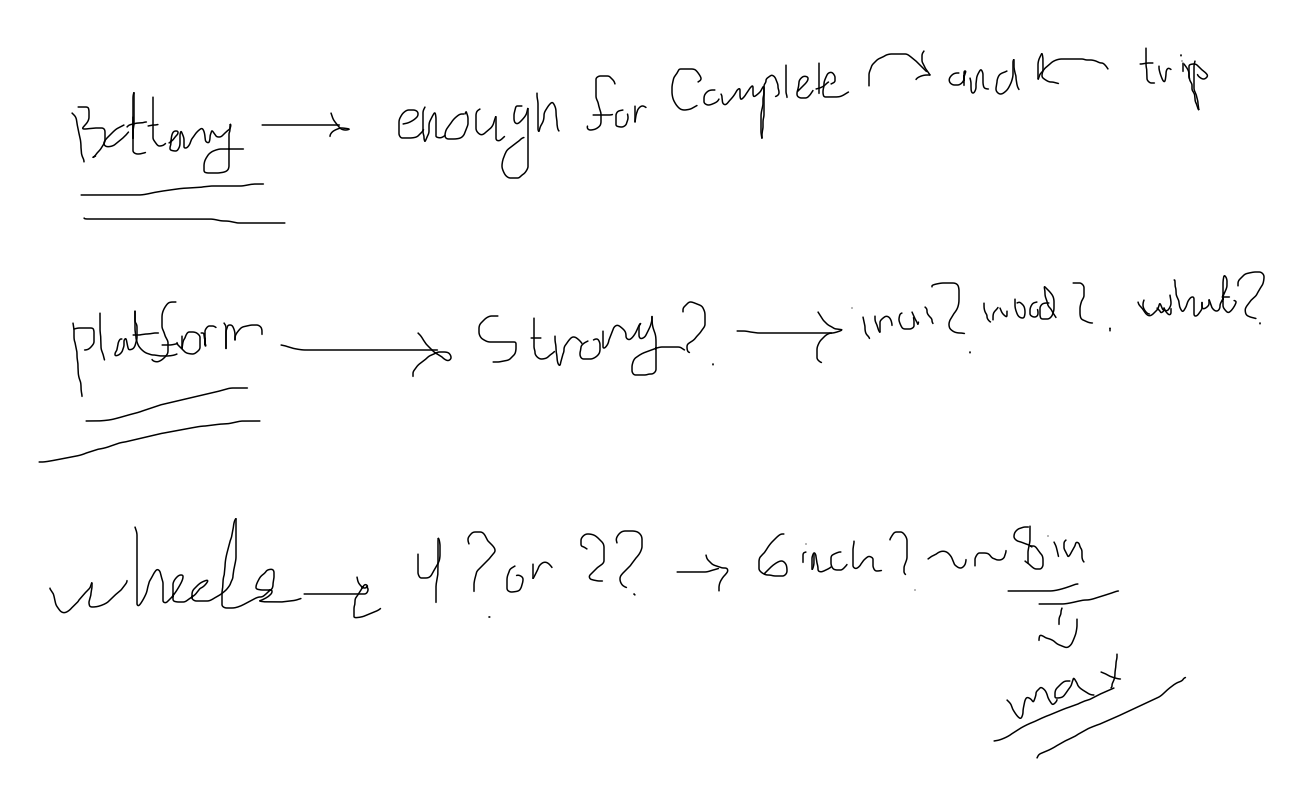 Battary → enough for Complete ↷ and ↶ trip
platform → Strong? → wood? what?
wheels → 4? or 2? → 6 inch? ~~ 8in
max